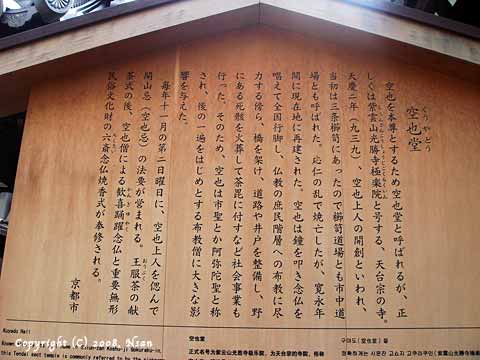 空也堂
くうやどう
空也を本尊とするため空也堂と呼ばれるが、正
しくは紫雲山光勝寺極楽院と号する、天台宗の寺。
天慶二年(九三九)、空也上人の開創といわれ、
当初は三条櫛笥にあったので櫛笥道場とも市中道
場とも呼ばれた。応仁の乱で焼亡したが、寛永年
間に現在地に再建された。空也は鐘を叩き念仏を
唱えて全国行脚し、仏教の庶民階層への布教に尽
力する傍ら、橋を架け、道路や井戸を整備し、野
にある死骸を火葬して荼毘に付すなど社会事業も
行った。そのため、空也は市聖とか阿弥陀聖と称
され、後の一遍をはじめとする布教僧に大きな影
響を与えた。
毎年十一月の第二日曜日に、空也上人を偲んで
開山忌(空也忌)の法要が営まれる。王服茶の献
茶式の後、空也僧による歓喜踊躍念仏と重要無形
民俗文化財の六斎念仏焼香式が奉修される。
京都市
Kuyado Hall
this Tendai sect temple is commonly referred to
空也堂
正式名号为紫云山光胜寺极乐院，为天台宗的寺院。
구야도(空也堂)
Copyright (C) 2008, N.san